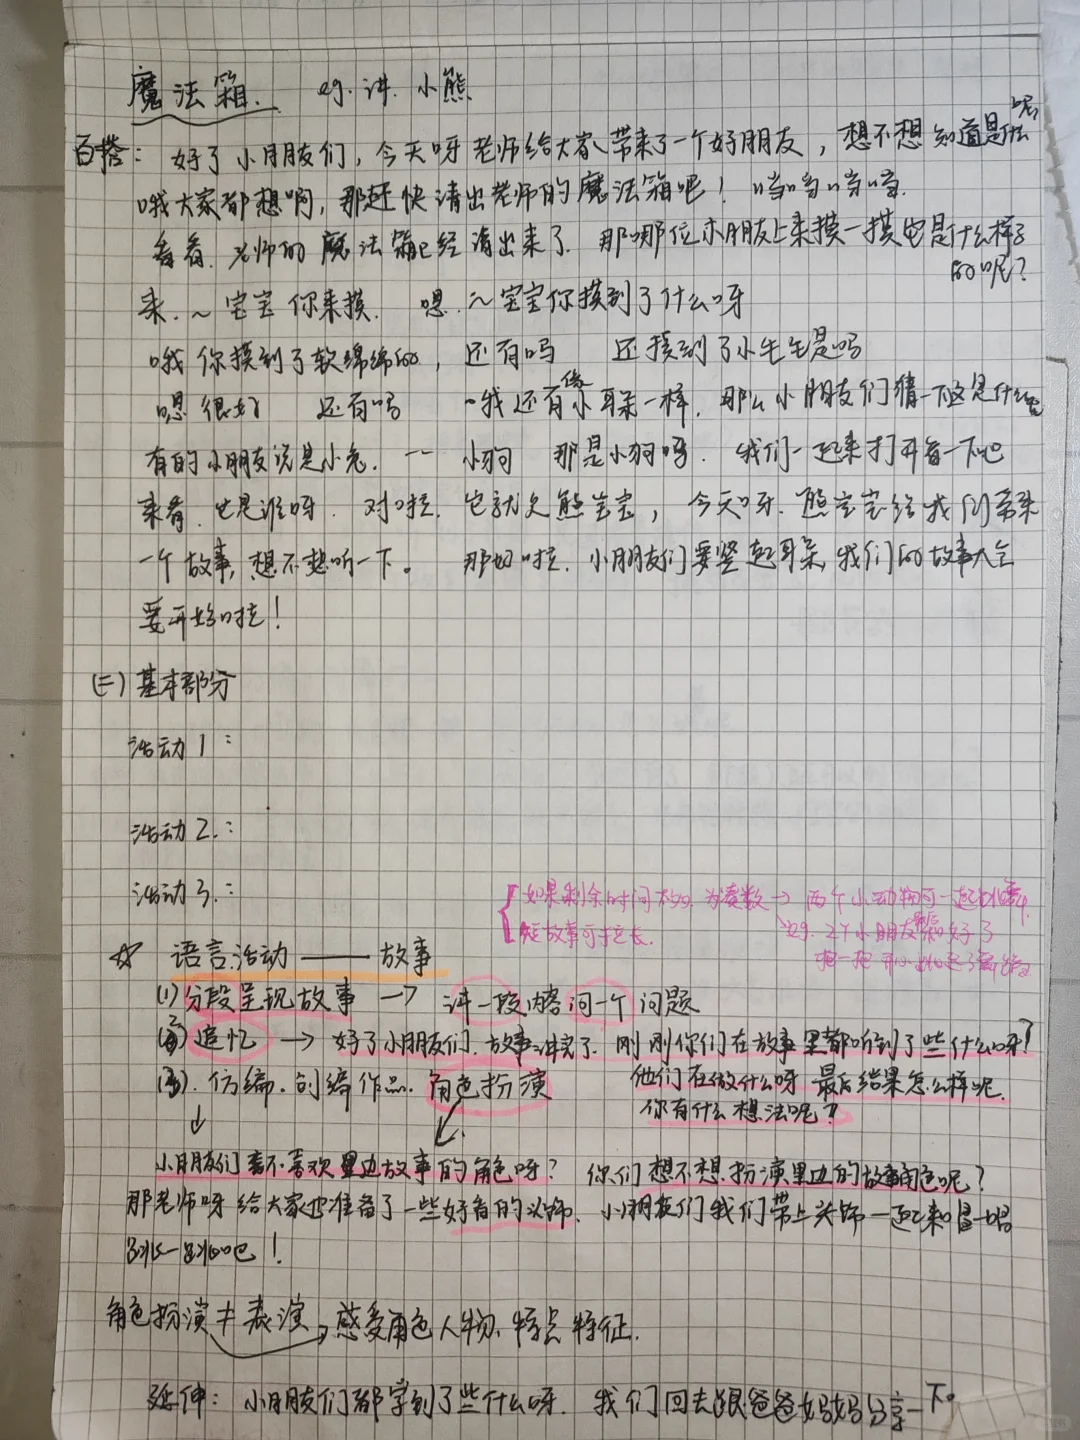 魔法箱. eg. 讲. 小熊
百搭: 好了小月朋友们, 今天呀老师给大家带来了一个好朋友, 想不想知道是什么呢
哦大家都想啊, 那赶快请出老师的魔法箱吧! 当当当当.
看看. 老师的魔法箱已经请出来了. 那哪位小朋友上来摸一摸它是什么样子的呢?
来. ~宝宝你来摸. 嗯. ~宝宝你摸到了什么呀
哦你摸到了软绵绵的, 还有吗 还摸到了小毛毛是吗
嗯很好 还有吗 哦还有像小耳朵一样. 那么小朋友们猜一下这是什么
有的小朋友说是小兔. 一 小狗 那是小狗吗. 我们一起来打开看一下吧
来看. 它是谁呀. 对啦. 它就是熊宝宝, 今天呀. 熊宝宝给我们带来
一个故事, 想不想听一下。 那好啦. 小朋友们要竖起耳朵, 我们的故事大会
要开始啦!
(二) 基本部分
活动1:
活动2.:
活动3.:
如果剩余时间太多, 为凑数 → 两个小动物可一起比赛
短故事可拉长. eg. 2个小朋友最后和好了
抱一抱 开心
☆ 语言活动 —— 故事
(1) 分段呈现故事 → 讲一段内容问一个问题
(2) 追忆 → 好了小朋友们. 故事讲完了. 刚刚你们在故事里都听到了些什么呀?
他们在做什么呀 最后结果怎么样呢.
你有什么想法呢?
(3). 仿编. 创编作品. 角色扮演
小月朋友们喜不喜欢里边故事的角色呀? 你们想不想扮演里边的故事角色呢?
那老师呀给大家也准备了一些好看的头饰. 小朋友们我们带上头饰一起来唱一唱
跳一跳吧!
角色扮演≠表演 感受角色人物、特点 特征.
延伸: 小月朋友们都学到了些什么呀. 我们回去跟爸爸妈妈分享一下。